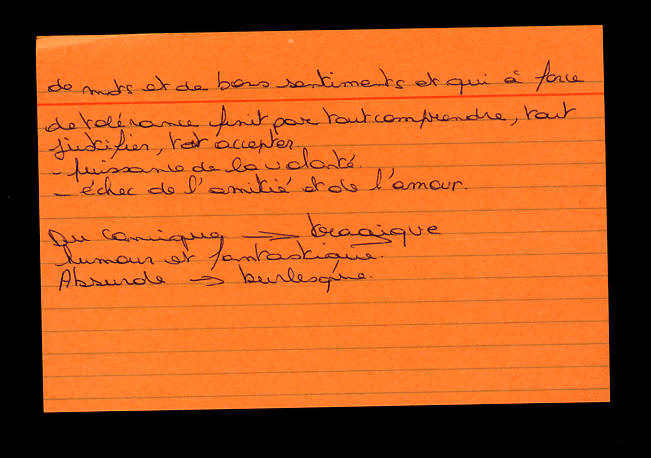 de mots et de bons sentiments et qui à force
de tolérance finit par tout comprendre, tout
justifier, tout accepter.
- puissance de la volonté.
- échec de l'amitié et de l'amour.
Du comique → tragique
humour et fantastique.
Absurde → burlesque.